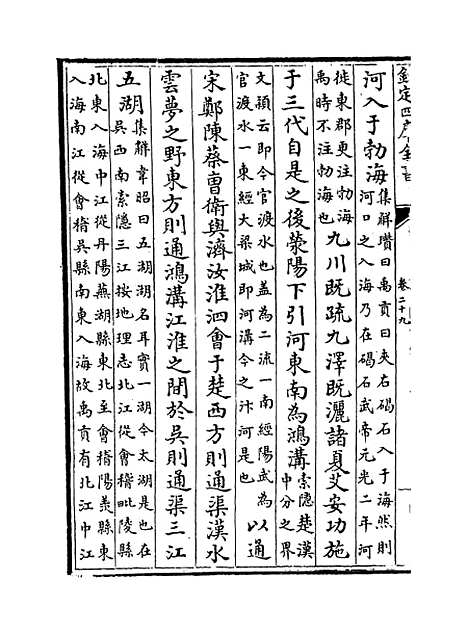 欽定四庫全書
卷二十九
河入于勃海
集解瓚曰禹貢曰夾右碣石入于海然則
河口之入海乃在碣石武帝元光二年河
徙東郡更注勃海
禹時不注勃海也
九川既疏九澤既灑諸夏艾安功施
于三代自是之後滎陽下引河東南為鴻溝
索隱楚漢
中分之界
文穎云即今官渡水也盖為二流一南經陽武為
官渡水一東經大梁城即河溝今之汴河是也
以通
宋鄭陳蔡曹衛與濟汝淮泗會于楚西方則通渠漢水
雲夢之野東方則通鴻溝江淮之間於吳則通渠三江
五湖
集解韋昭曰五湖湖名耳實一湖今太湖是也在
吳西南索隱三江按地理志北江從會稽毗陵縣
北東入海中江從丹陽蕪湖縣東北至會稽陽羨縣東
入海南江從會稽吳縣南東入海故禹貢有北江中江